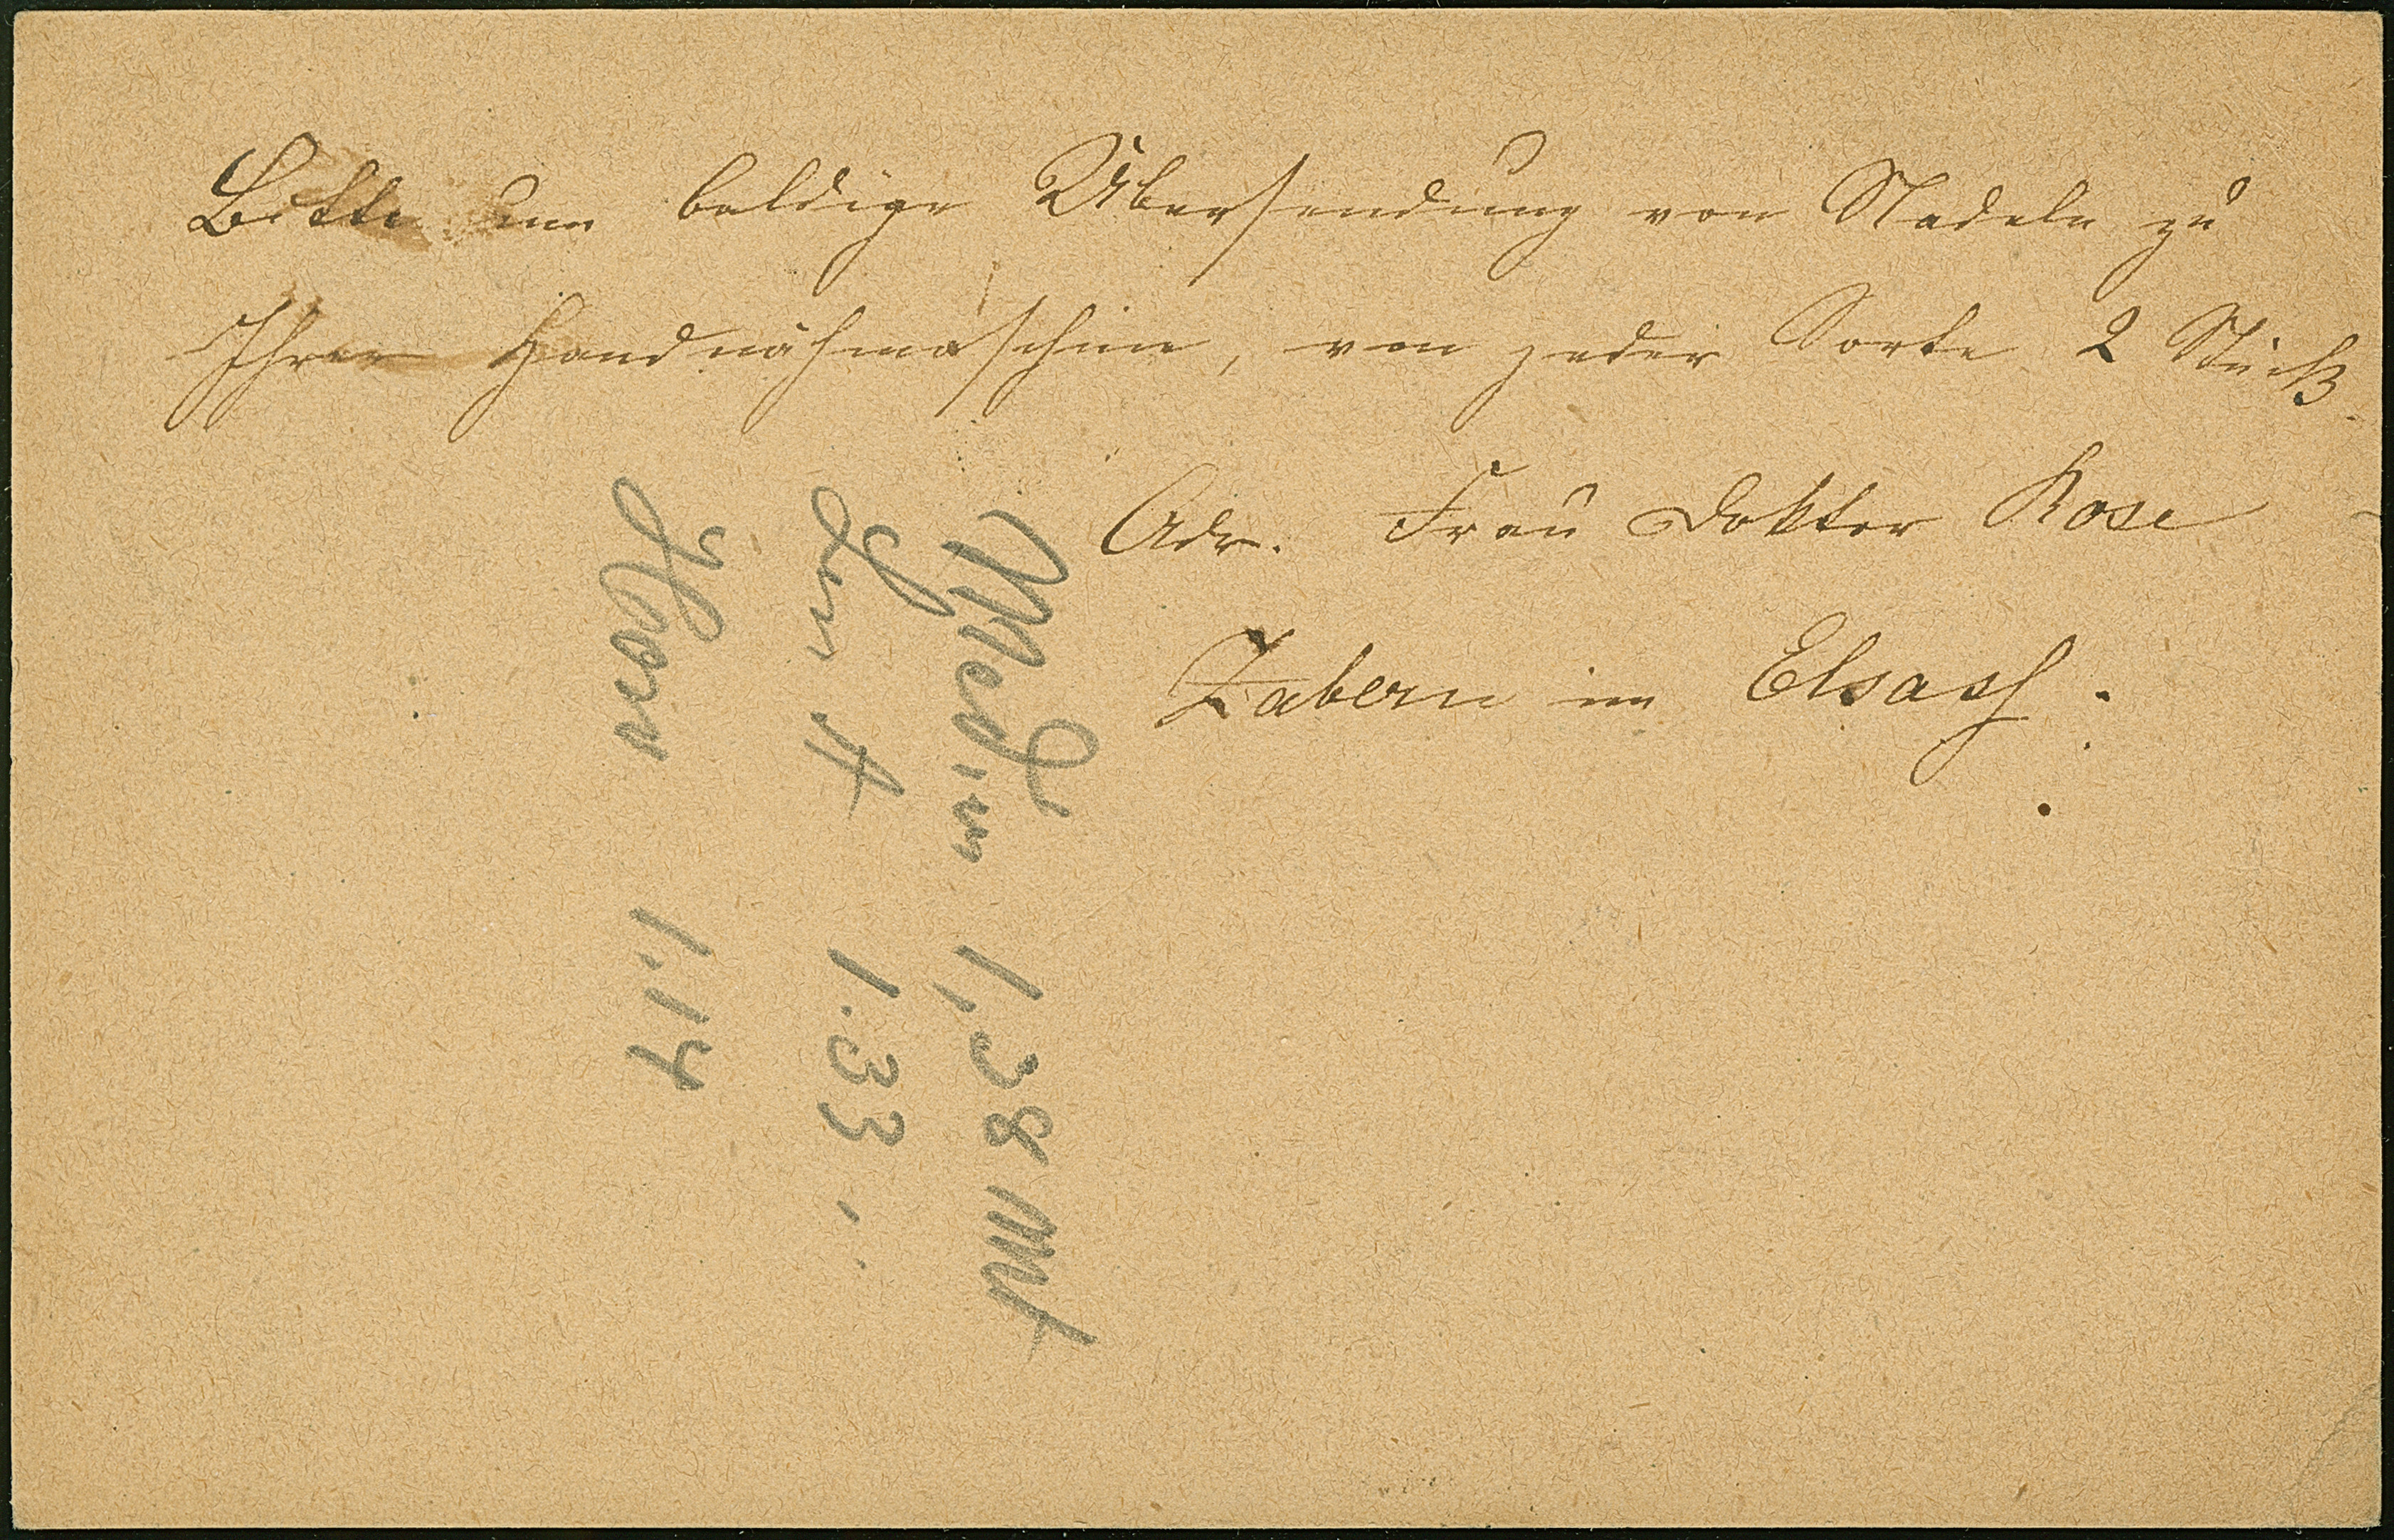 Bitte um baldige Übersendung von Nadeln zu
Ihrer Handnähmaschine, von jeder Sorte 2 Stück.
Adr. Frau Doktor Rose
Zabern im Elsass.
1,38 Mk
A 1.33 "
1.14